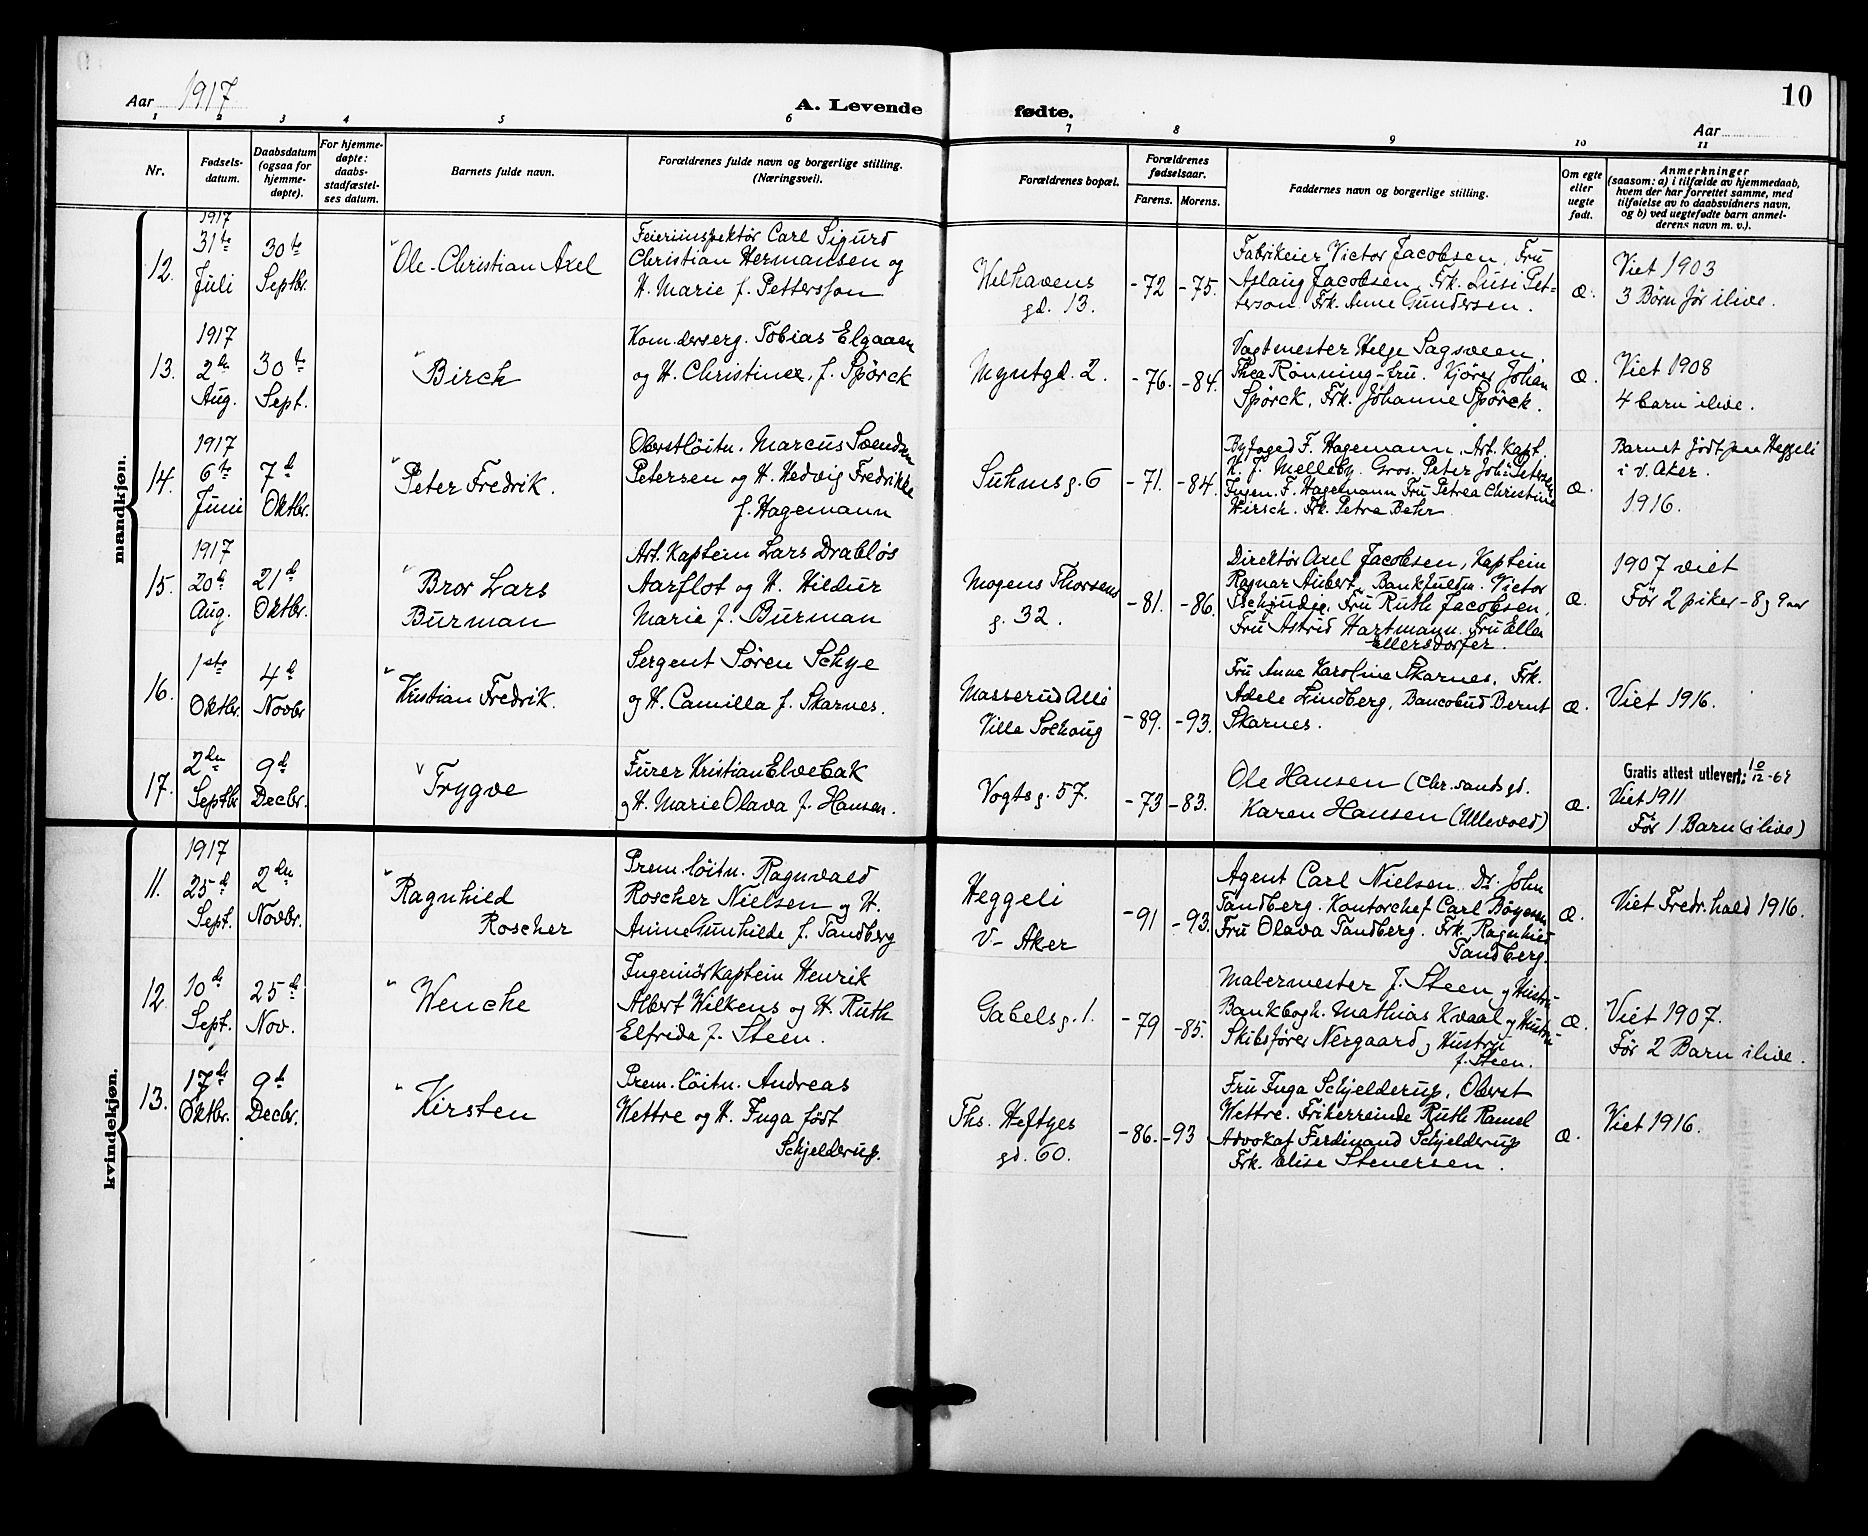 10
Aar 1917
A. Levende fødte.
Aar
1 2 3 4 5 6 7 8 9 10 11
Nr.
Fødsels-
datum.
Daabsdatum
(ogsaa for
hjemme-
døpte).
For hjemme-
døpte:
daabs-
stadfæstel-
ses datum.
Barnets fulde navn.
Forældrenes fulde navn og borgerlige stilling.
(Næringsvei).
Forældrenes bopæl.
Forældrenes
fødselsaar.
Farens. Morens.
Faddernes navn og borgerlige stilling.
Om egte
eller
uegte
født.
Anmerkninger
(saasom: a) i tilfælde av hjemmedaab,
hvem der har forrettet samme, med
tilføielse av to daabsvidners navn,
og b) ved uegtefødte barn anmel-
derens navn m. v.).
mandkjøn.
12.
1917
31te
Juli
30te
Septbr.
Ole Christian Axel
Feierinspektør Carl Sigurd
Christian Hermansen og
H. Marie f. Petterson
Welhavens
gd. 13.
-72 -75.
Fabrikeier Victor Jacobsen. Fru
Aslaug Jacobsen, Frk. Lusi Pet-
terson. Frk. Anne Gundersen.
Æ.
Viet 1903
3 Børn før ilive.
13.
1917
2den
Aug.
30te
Sept.
Birch
Kom.derserg. Tobias Elgaaen
og H. Christinee, f. Spørck
Myntgd. 2.
-76. -84.
Vagtmester Helge Sagsveen.
Thea Rønning - fru. Kjører Johan
Spørck. Frk. Johanne Spørck.
Æ.
Viet 1908
4 barn ilive.
14.
1917
6te
Juni
7d
Oktbr.
Peter Fredrik.
Oberstløitn. Marcus Svendsen
Petersen og H. Hedvig Fredrikke
f. Hagemann
Suhms g. 6
-71. -84.
Byfoged F. Hagemann, Art. Kapt.
K. J. Melleby. Gros. Peter Joh. Petersen
Ingen. F. Hagemann Fru Petrea Christine
Hirsch. Frk. Petra Behr
Æ.
Barnet født paa Heggeli
i v. Aker.
1916.
15.
1917
20de
Aug.
21d
Oktbr.
Bror Lars
Burman
Art. Kaptein Lars Drabløs
Aarflot og H. Hildur
Marie f. Burman
Mogens Thorsens
g. 32.
-81. -86.
Direktør Axel Jacobsen, Kaptein
Ragnar Aubert, Bankfuldm. Victor
Tschudie. Fru Ruth Jacobsen,
Fru Astrid Hartmann. Fru Ella
Ellersdorfer.
Æ.
1907 viet
Før 2 piker - 8 og 9 aar
16.
1ste
Oktbr.
4d
Novbr
Kristian Fredrik.
Sergent Søren Schye
og H. Camilla f. Skarnes.
Masserud Allé
Villa Solhaug
-89. -93.
Fru Anna Karoline Skarnes, Frk.
Adele Lindberg, Bancobud Bernt
Skarnes.
Æ.
Viet 1916.
17.
2den
Septbr.
9d
Decbr.
Trygve
Furer Kristian Elvebak
og H. Marie Olava f. Hansen.
Vogtsg. 57.
-73 -83.
Ole Hansen (Chr. sands gd.
Karen Hansen (Ullevold)
Æ.
Gratis attest utlevert: 10/12-64
Viet 1911
Før 1 Barn (ilive)
kvindekjøn.
11.
1917
25d
Sept.
2den
Novbr.
Ragnhild
Roscher
Prem. løitn. Ragnvald
Roscher Nielsen og H.
Anne Gunhilde f. Tandberg
Heggeli
V- Aker
-91 -93.
Agent Carl Nielsen. Dr. John
Tandberg. Kontorchef Carl Bøgenn
Fru Olava Tandberg. Frk. Ragnhild
Tandberg.
Æ.
Viet Fredr.hald 1916.
12.
10de
Sept.
25de
Nov.
Wenche
Ingeniørkaptein Henrik
Albert Wilkens og H. Ruth
Elfrida f. Steen.
Gabels g. 1.
-79 -85.
Malermester J. Steen og Hustru
Bankbogh. Mathias Kvaal og Hustru
Skibsfører Nergaard og Hustru
f. Steen.
Æ.
Viet 1907.
Før 2 Barn ilive.
13.
17de
Oktbr.
9d
Decbr.
Kirsten
Prem. løitn. Andreas
Wettre og H. Inga født
Schjelderup.
Ths. Heftyes
gd. 60.
-86. -93
Fru Inga Schjelderup, Oberst
Wettre. Frikerreinde Ruth Ramel
Advokat Ferdinand Schjelderup
Frk. Elise Stenersen.
Æ.
Viet 1916.